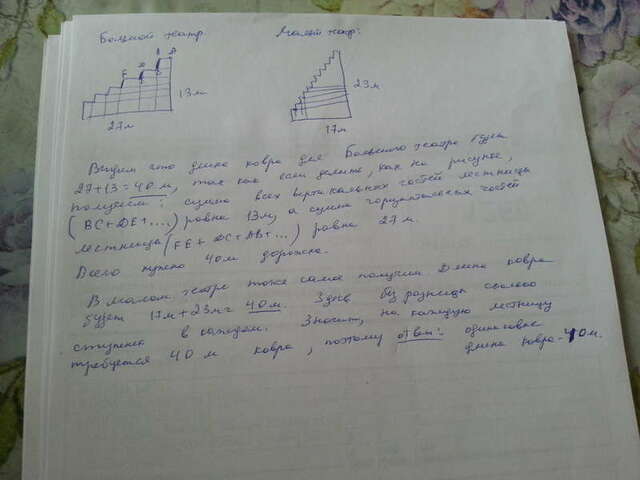 Большой театр.
Малый театр:
A
B
C
D
E
13м
27м
23м
17м
Видим что длина ковра для Большого театра будет
27+13=40 м, так как если делить, как на рисунке,
получаем: сумма всех вертикальных частей лестницы
(BC+DE+....) равна 13м, а сумма горизонтальных частей
лестницы (FE+DC+AB+...) равна 27 м.
Всего нужно 40м дорожки.
В малом театре тоже самое получим. Длина ковра
будет 17м+23м= 40м. Здесь без разницы сколько
ступенек в каждом. Значит, на каждую лестницу
требуется 40 м ковра, поэтому ответ: одинаковые
длина ковра-40м.